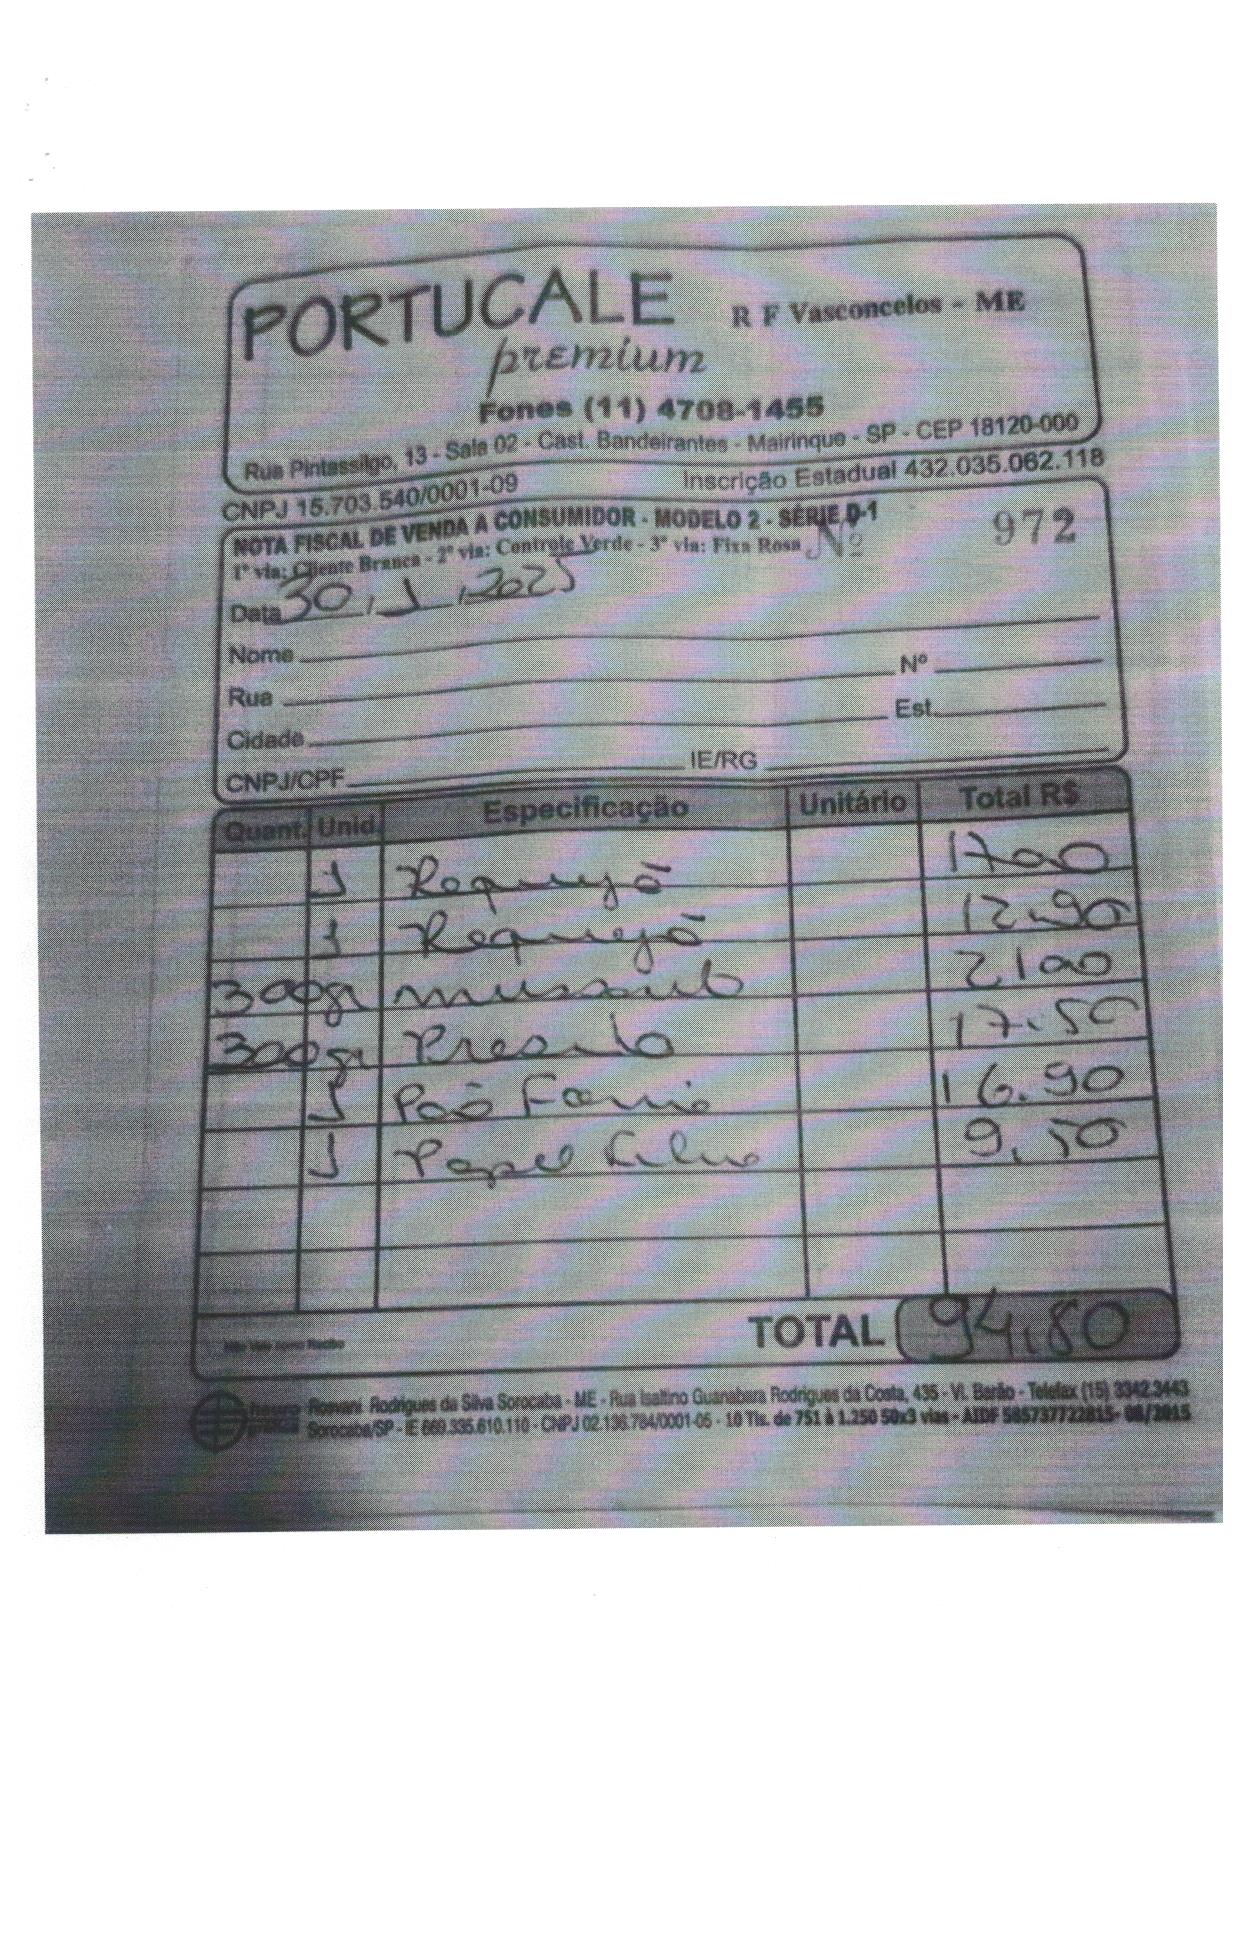 PORTUCALE
premium
R F Vasconcelos - ME
Fones (11) 4708-1455
Rua Pintassilgo, 13 - Sala 02 - Cast. Bandeirantes - Mairinque - SP - CEP 18120-000
CNPJ 15.703.540/0001-09 Inscrição Estadual 432.035.062.118
NOTA FISCAL DE VENDA A CONSUMIDOR - MODELO 2 - SÉRIE D-1
1ª via: Cliente Branca - 2ª via: Controle Verde - 3ª via: Fixa Rosa Nº 972
Data 30, 1, 2025
Nome
Rua Nº
Cidade Est.
CNPJ/CPF IE/RG
Quant. Unid. Especificação Unitário Total R$
1 Requeijão 17,00
1 Requeijão 12.90
300gr 21,00
300gr Presunto 17.50
1 Pão 16.90
1 Papel Filme 9,50
TOTAL 94,80
Não Vale como Recibo
Rosvani Rodrigues da Silva Sorocaba - ME - Rua Isaltino Guanabara Rodrigues da Costa, 435 - Vl. Barão - Telefax (15) 3342.3443
Sorocaba/SP - IE 669.335.610.110 - CNPJ 02.136.784/0001-05 - 10 Tls. de 751 à 1.250 50x3 vias - AIDF 585737722815- 08/2015